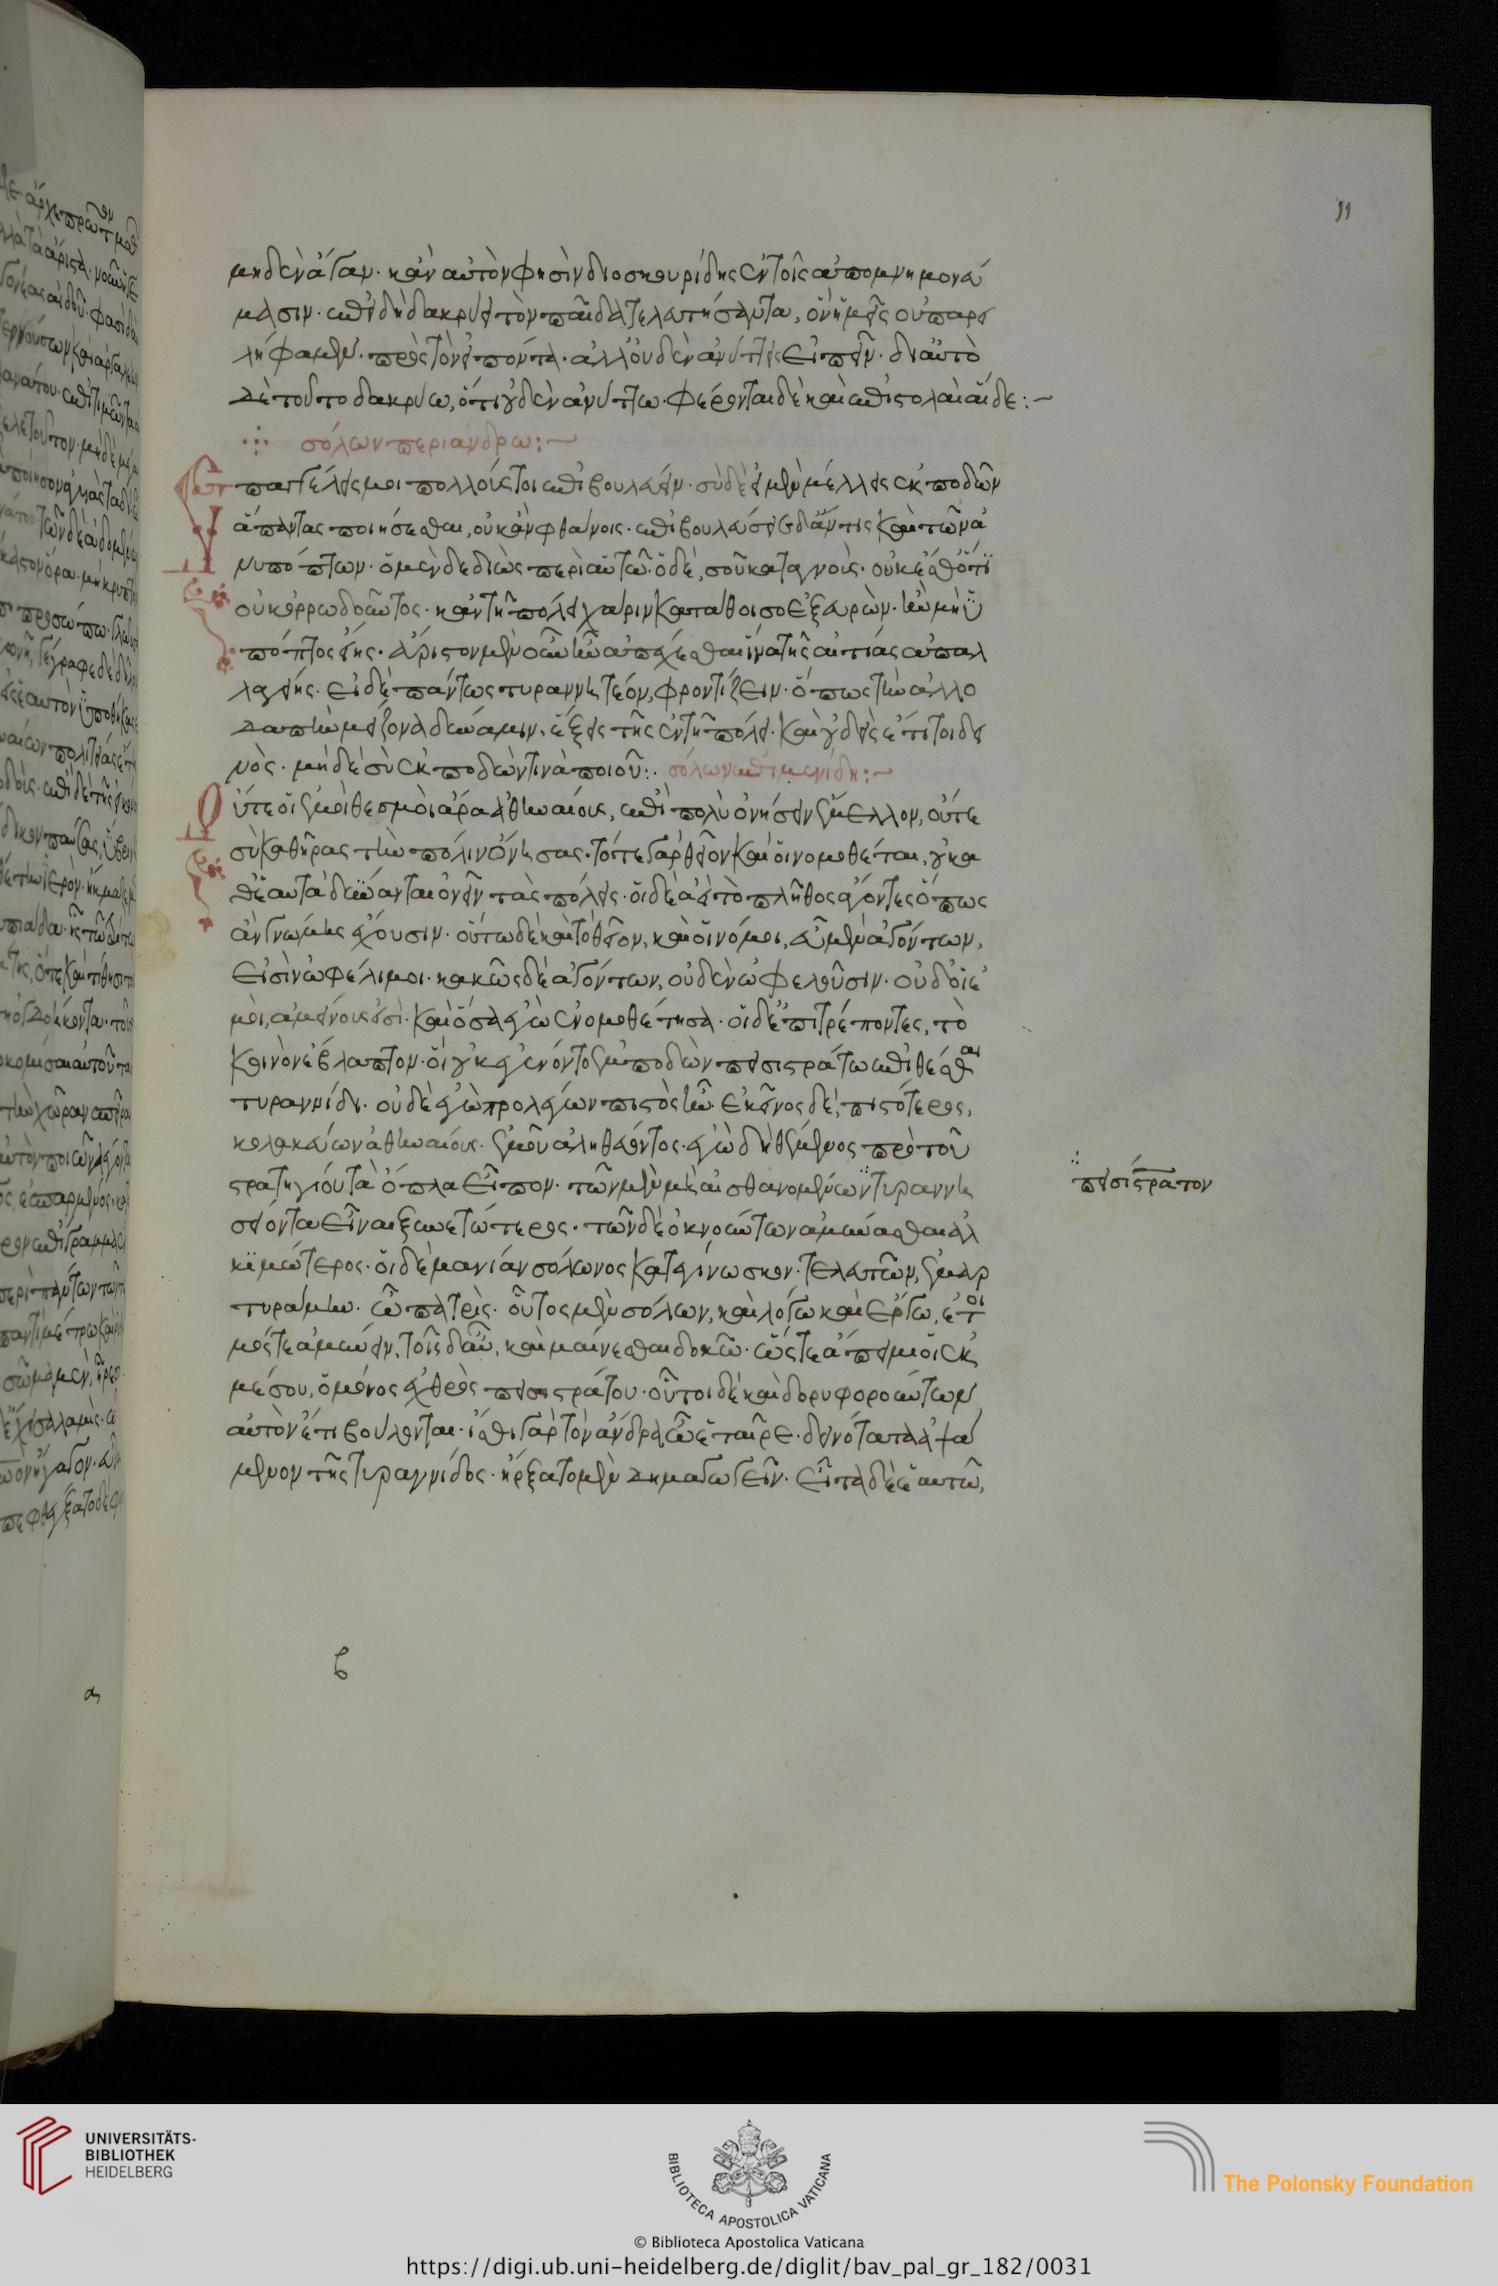 11
μηδὲν ἄγαν· καὶ αὐτὸν φησὶν διοσκουρίδης ἐν τοῖς ἀπομνημονεύ
μασιν· ἐπειδὴ δακρύει τὸν παῖδα τελευτήσαντα, ὃν ἡμεῖς οὐ παρει
λήφαμεν· πρὸς τὸν εἰπόντα· ἀλλ' οὐδὲν ἀνύττεις εἰπεῖν· δι' αὐτὸ
δὲ τοῦτο δακρύω, ὅτι οὐδὲν ἀνύττω· φέρονται δὲ καὶ ἐπιστολαὶ αἵδε:~
σόλων περιάνδρω:~
Ἐπαγγέλεις μοι πολλούς τοι ἐπιβουλεύειν· σὺ δὲ εἰ μὲν μέλλεις ἐκποδὼν
ἅπαντας ποιήσεσθαι, οὐκ ἂν φθαίνοις· ἐπιβουλεύσειε δ' ἄν τις καὶ τῶν ἀ
νυπόπτων· ὁ μὲν δεδιὼς περὶ αὐτῶ· ὁ δέ, σοῦ καταγνοὺς· οὐκ ἔσθ' ὅτι
οὐκ ὀρρωδοῦντος· κἂν τῆ πόλει χάριν κατάθοιτο ἐξευρὼν· ἢν μὴ ὕ
ποπτος εἴης· ἄριστον μὲν οὖν ἦν ἀπέχεσθαι ἵνα τῆς αἰτίας ἀπαλ
λαγείης· εἰ δὲ πάντως τυραννητέον, φροντίζειν· ὅπως τὴν ἀλλο
δαπὴν μείζονα δύναμιν, ἕξεις τῆς ἐν τῆ πόλει· καὶ οὐδεὶς ἔτι τοι δει
νὸς· μηδὲ σὺ ἐκποδών τινα ποιοῦ:· σόλων ἐπιμενίδη:~
Οὔτε οἱ ἐμοὶ θεσμοὶ ἄρα ἀθηναίους, ἐπὶ πολὺ ὀνήσειν ἔμελλον, οὔτε
σὺ καθήρας τὴν πόλιν ὤνησας· τό τε γὰρ θεῖον καὶ οἱ νομοθέται, οὐ κα
θ' ἑαυτὰ δύνανται ὀνεῖν τὰς πόλεις· οἱ δὲ ἀεὶ τὸ πλῆθος ἄγοντες ὅπως
ἂν γνώμης ἔχουσιν· οὕτω δὲ καὶ τὸ θεῖον, καὶ οἱ νόμοι, εὖ μὲν ἀγόντων,
εἰσὶν ὠφέλιμοι· κακῶς δὲ ἀγόντων, οὐδὲν ὠφελοῦσιν· οὐδ' οἱ ἐ
μοι, ἀμείνους εἰσὶ· καὶ ὅσα ἐγὼ ἐνομοθέτησα· οἱ δ' ἐπιτρέποντες, τὸ
κοινὸν ἔβλαπτον· οἳ οὐκ ἐγένοντο ἐμποδὼν πεισιστράτω ἐπιθέσθαι
τυραννίδι· οὐδὲ ἐγὼ προλέγων πιστὸς ἦν· ἐκεῖνος δὲ, πιστότερος,
κολακεύων ἀθηναίους· ἐμοῦ ἀληθεύοντος· ἐγὼ δὴ θέμενος πρὸ τοῦ
στρατηγίου τὰ ὅπλα εἶπον· τῶν μὲν μὴ αἰσθανομένων τυραννη
σείοντα εἶναι ξυνετώτερος· τῶν δὲ ὀκνούντων ἀμύνεσθαι ἀλ
κιμώτερος· οἱ δὲ μανίαν σόλωνος κατεγίνωσκον· τελευτῶν, ἐμαρ
τυράμην· ὦ πατρὶς· οὗτος μὲν σόλων, καὶ λόγω καὶ ἔργω, ἕτοι
μός τε ἀμύνειν, τοῖς δ' αὖ, καὶ μαίνεσθαι δοκῶ· ὥστε ἄπειμι οἱ ἐκ
μέσου, ὁ μόνος ἐχθρὸς πεισιστράτου· οὗτοι δὲ καὶ δορυφορούντων
αὐτὸν εἴ τι βούλονται· ἴσθι γὰρ τὸν ἄνδρα ὦ ἑταῖρε· δεινότατα ἁψά
μενον τῆς τυραννίδος· ἤρξατο μὲν δημαγωγεῖν· εἶτα δὲ ἑαυτῶ,
πεισίστρατον
β
UNIVERSITÄTS-
BIBLIOTHEK
HEIDELBERG
BIBLIOTECA APOSTOLICA VATICANA
The Polonsky Foundation
© Biblioteca Apostolica Vaticana
https://digi.ub.uni-heidelberg.de/diglit/bav_pal_gr_182/0031